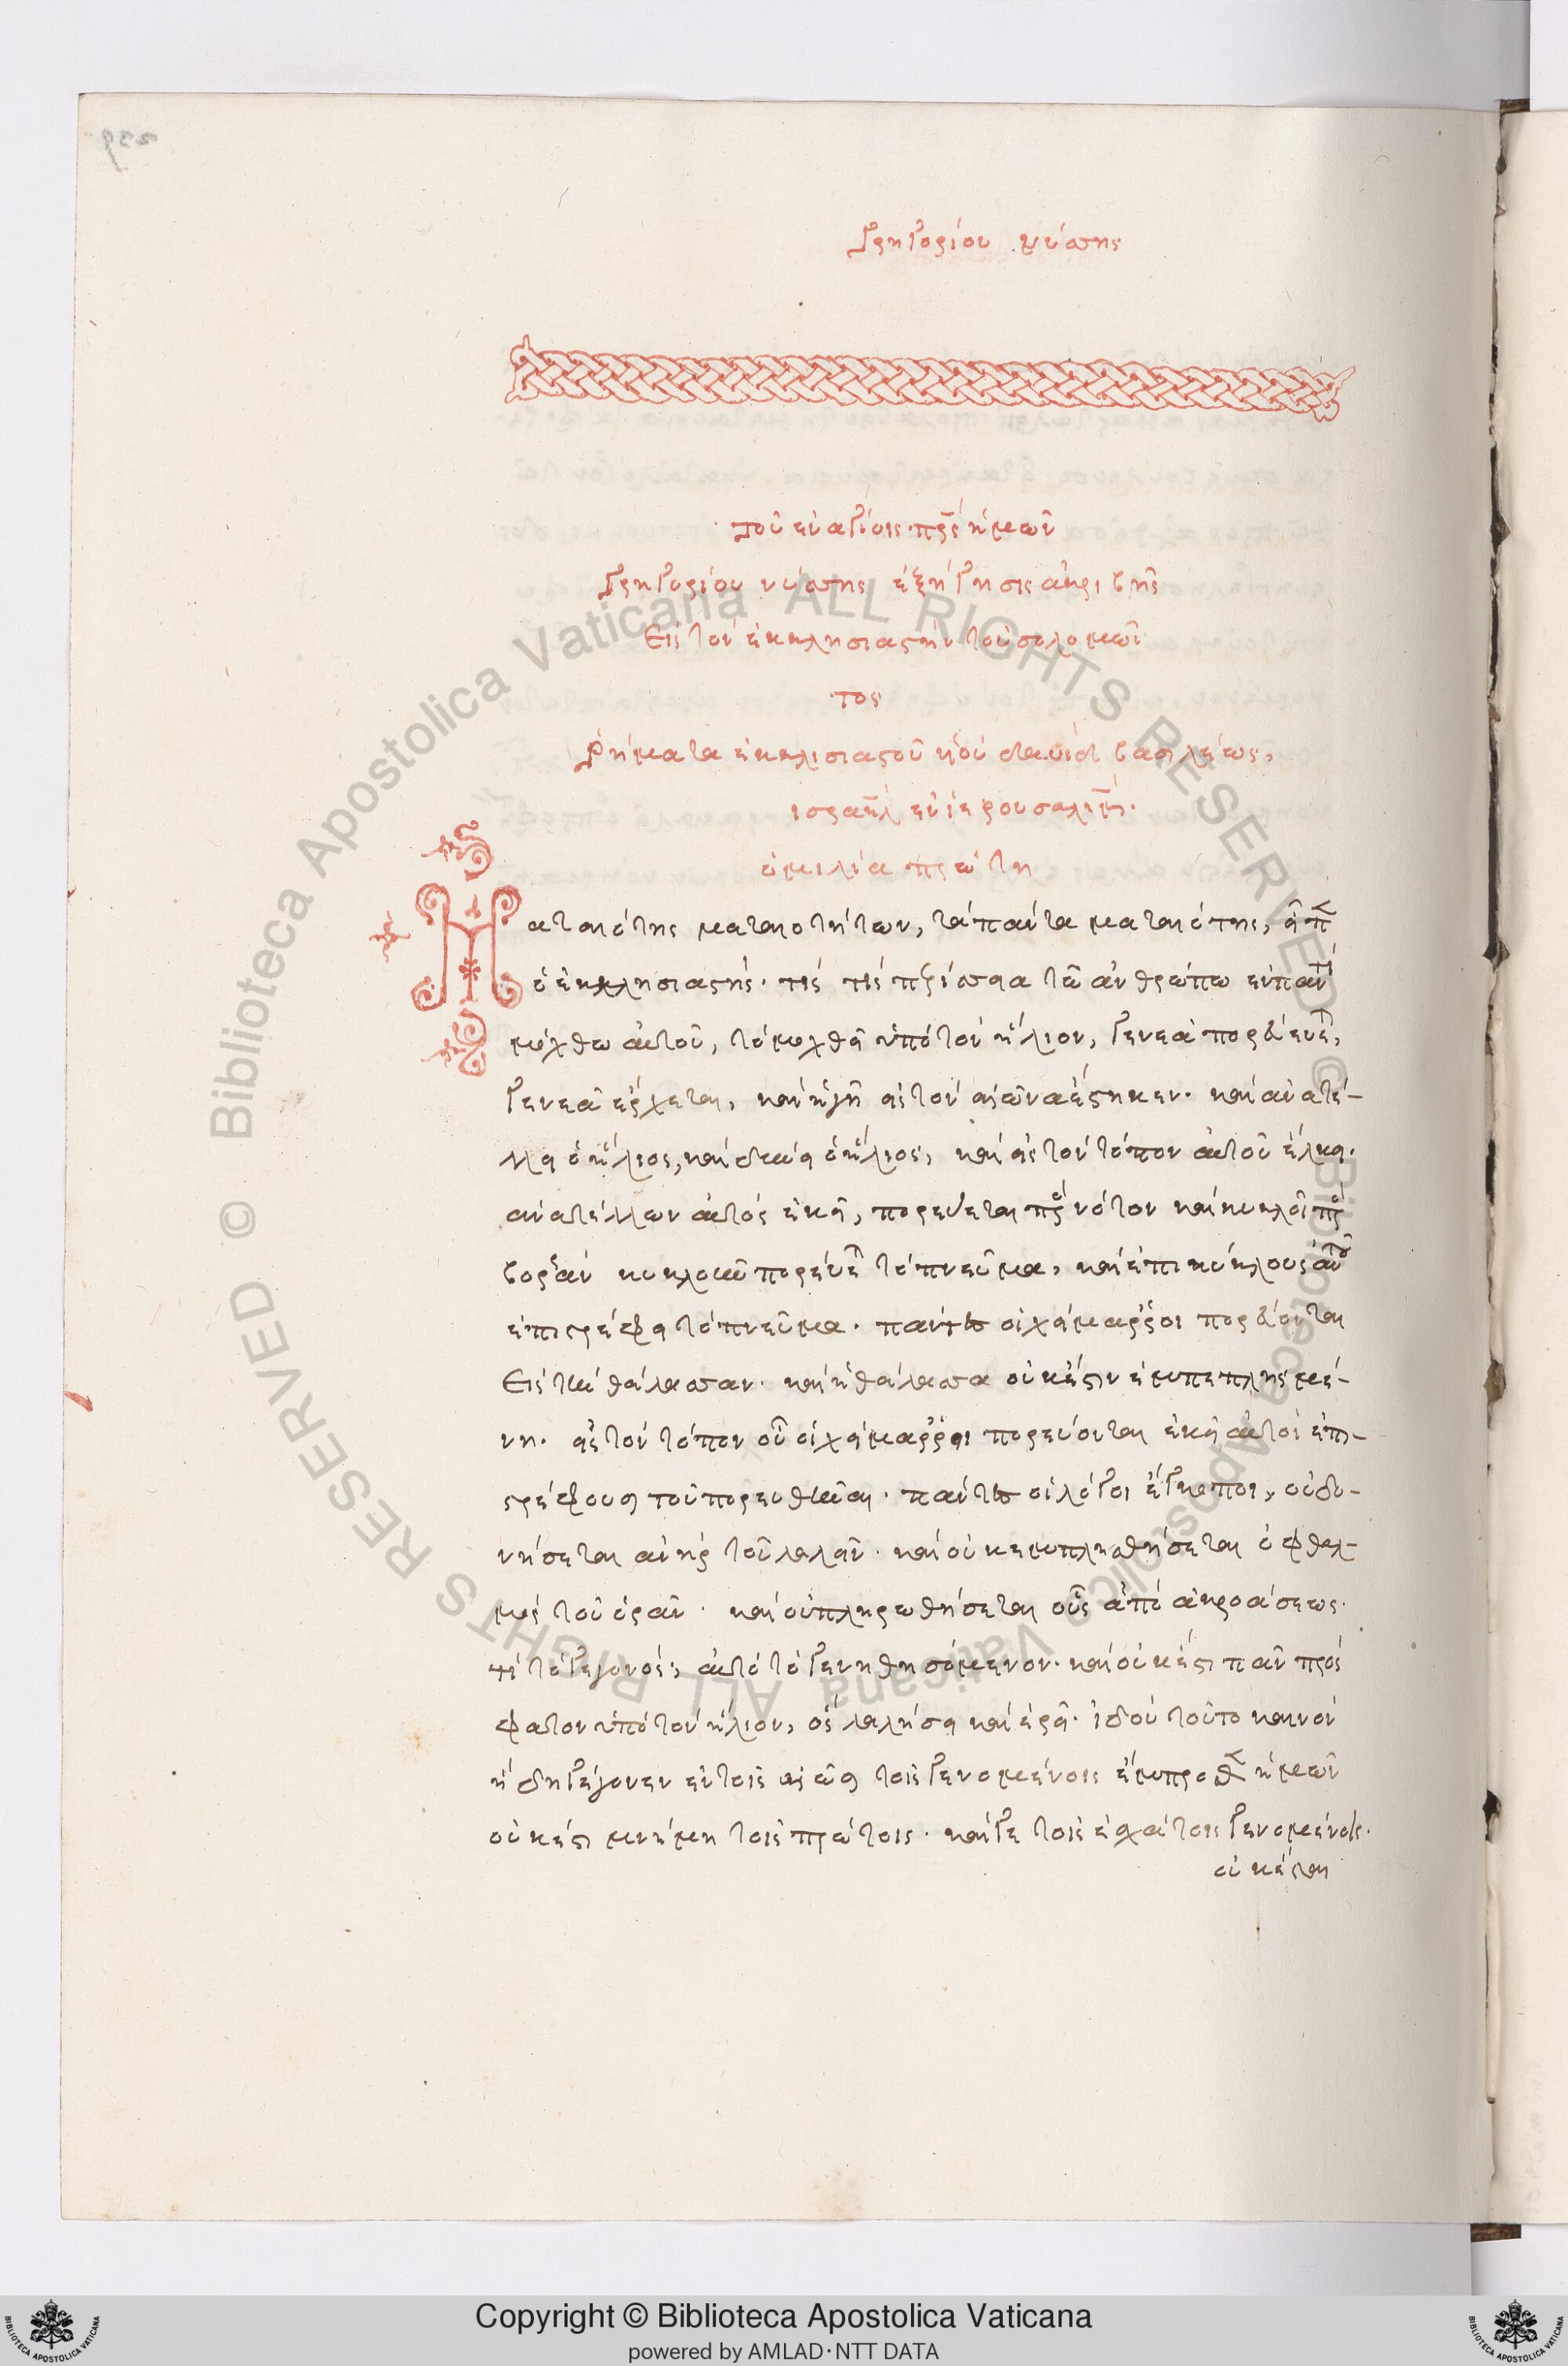 Γρηγορίου νύσσης
τοῦ ἐν ἁγίοις πρς ἡμῶν
Γρηγορίου νύσσης ἐξήγησις ἀκριβὴς
Εἰς τὸν ἐκκλησιαστὴν τοῦ σολομῶν
τος
Ῥήματα ἐκκλισιαστοῦ υἱοῦ δαυὶδ βασιλέως,
ισραὴλ ἐν ἱερουσαλὴμ.
ὁμιλία πρώτη
Ματαιότης ματαιοτήτων, τὰ πάντα ματαιότης, εἶπ
ὁ ἐκκλησιαστής. τίς τίς περίσσεια τῶ ἀνθρώπω ἐν παντὶ
μόχθω αὐτοῦ, ὃ μοχθεῖ ὑπὸ τὸν ἥλιον, γενεὰ πορεύεται,
γενεὰ ἔρχεται, καὶ ἡ γῆ εἰς τὸν αἰῶνα ἕστηκεν. καὶ ἀνατέ-
λλει ὁ ἥλιος, καὶ δύνει ὁ ἥλιος, καὶ εἰς τὸν τόπον αὐτοῦ ἕλκει.
ἀνατέλλων αὐτὸς ἐκεῖ, πορεύεται πρὸς νότον καὶ κυκλοῖ πρὸς
βορρὰν κυκλοῖ κυκλῶν πορεύεται τὸ πνεῦμα, καὶ ἐπὶ κύκλους αὐτοῦ
ἐπιστρέφει τὸ πνεῦμα. πάντες οἱ χείμαρροι πορεύονται
Εἰς τὴν θάλασσαν. καὶ ἡ θάλασσα οὐκ ἔστιν ἐμπεπλησμέ-
νη. εἰς τὸν τόπον οὗ οἱ χείμαρροι πορεύονται ἐκεῖ αὐτοὶ ἐπι-
στρέφουσι τοῦ πορευθῆναι. πάντες οἱ λόγοι ἔγκοποι, οὐ δυ-
νήσεται ἀνὴρ τοῦ λαλεῖν. καὶ οὐκ ἐμπλησθήσεται ὀφθαλ-
μὸς τοῦ ὁρᾶν. καὶ οὐ πληρωθήσεται οὖς ἀπὸ ἀκροάσεως.
τί τὸ γεγονός, αὐτὸ τὸ γενηθησόμενον. καὶ οὐκ ἔστι πᾶν πρόσ
φατον ὑπὸ τὸν ἥλιον, ὃς λαλήσει καὶ ἐρεῖ. ἰδοὺ τοῦτο καινὸν
ἤδη γέγονεν ἐν τοῖς αἰῶσι τοῖς γενομένοις ἔμπροσθεν ἡμῶν
οὐκ ἔστι μνήμη τοῖς πρώτοις. καί γε τοῖς ἐσχάτοις γενομένοις.
οὐκ ἔσται
Copyright © Biblioteca Apostolica Vaticana
powered by AMLAD·NTT DATA